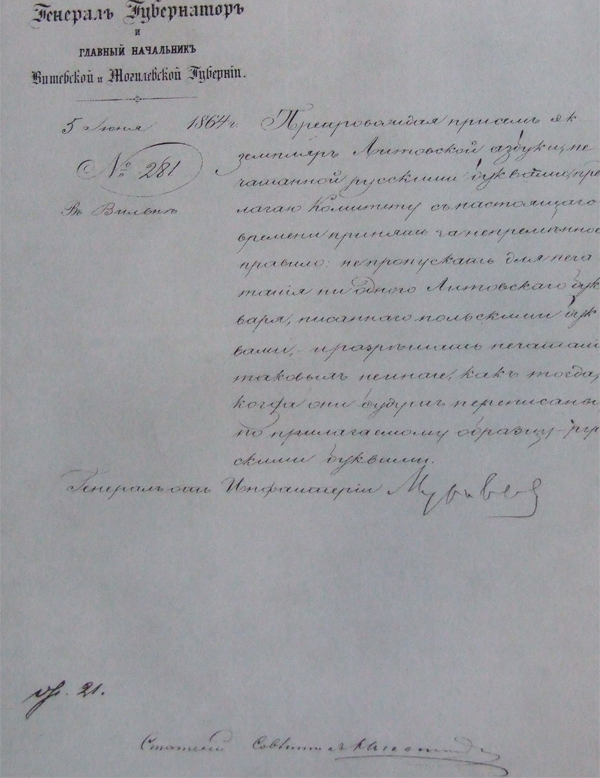 Генералъ Губернаторъ
и
ГЛАВНЫЙ НАЧАЛЬНИКЪ
Витебской и Могилевской Губерній.
5 Іюня 1864 г.
№ 281
Въ Вильнѣ
Препровождая при семъ эк
земпляръ Литовской азбуки, пе
чатанной русскими буквами, пре
лагаю Комитету съ настоящаго
времени принять за непремѣнное
правило: не пропускать для печа
танія ни одного Литовскаго бук
варя, писаннаго польскими бук
вами, - и разрѣшать печатаніе
таковымъ не иначе, какъ тогда,
когда они будутъ переписаны
по прилагаемому образцу - рус
скими буквами.
Генералъ отъ Инфантеріи Муравьев
21.
Статскій Совѣтникъ